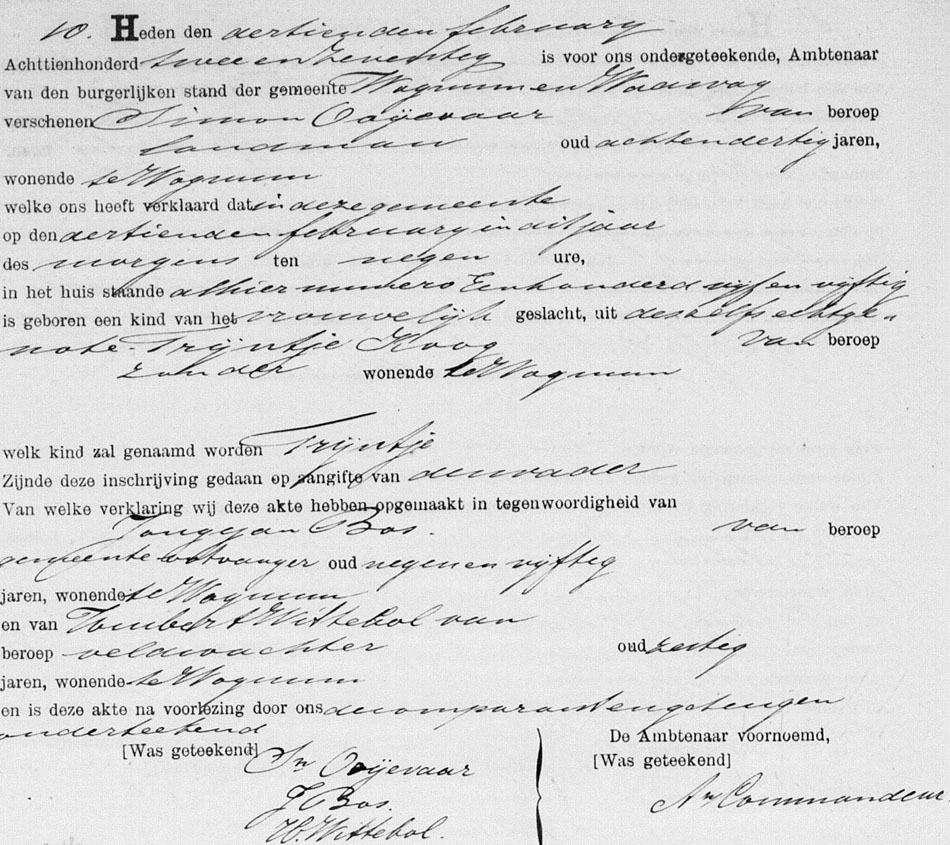 10. Heden den dertienden february
Achttienhonderd twee en zeventig is voor ons ondergeteekende, Ambtenaar
van den burgerlijken stand der gemeente Wognum en Wadway
verschenen Simon Ooijevaar van beroep
landman oud achtendertig jaren,
wonende te Wognum
welke ons heeft verklaard dat in deze gemeente
op den dertienden february in dit jaar
des morgens ten negen ure,
in het huis staande alhier numero Eenhonderd vyf en vyftig
is geboren een kind van het vrouwelijk geslacht, uit deszelfs echtge-
note Trijntje Koog van beroep
zonder wonende te Wognum
welk kind zal genaamd worden Trijntje
Zijnde deze inschrijving gedaan op aangifte van den vader
Van welke verklaring wij deze akte hebben opgemaakt in tegenwoordigheid van
Jongejan Bos. van beroep
gemeente ontvanger oud negen en vyftig
jaren, wonende te Wognum
en van Humbert Wittebol van
beroep veldwachter oud zestig
jaren, wonende te Wognum
en is deze akte na voorlezing door ons de comparant en getuigen
onderteekend
[Was geteekend] De Ambtenaar voornoemd,
Sn Ooijevaar [Was geteekend]
J Bos. An Commandeur
H. Wittebol.